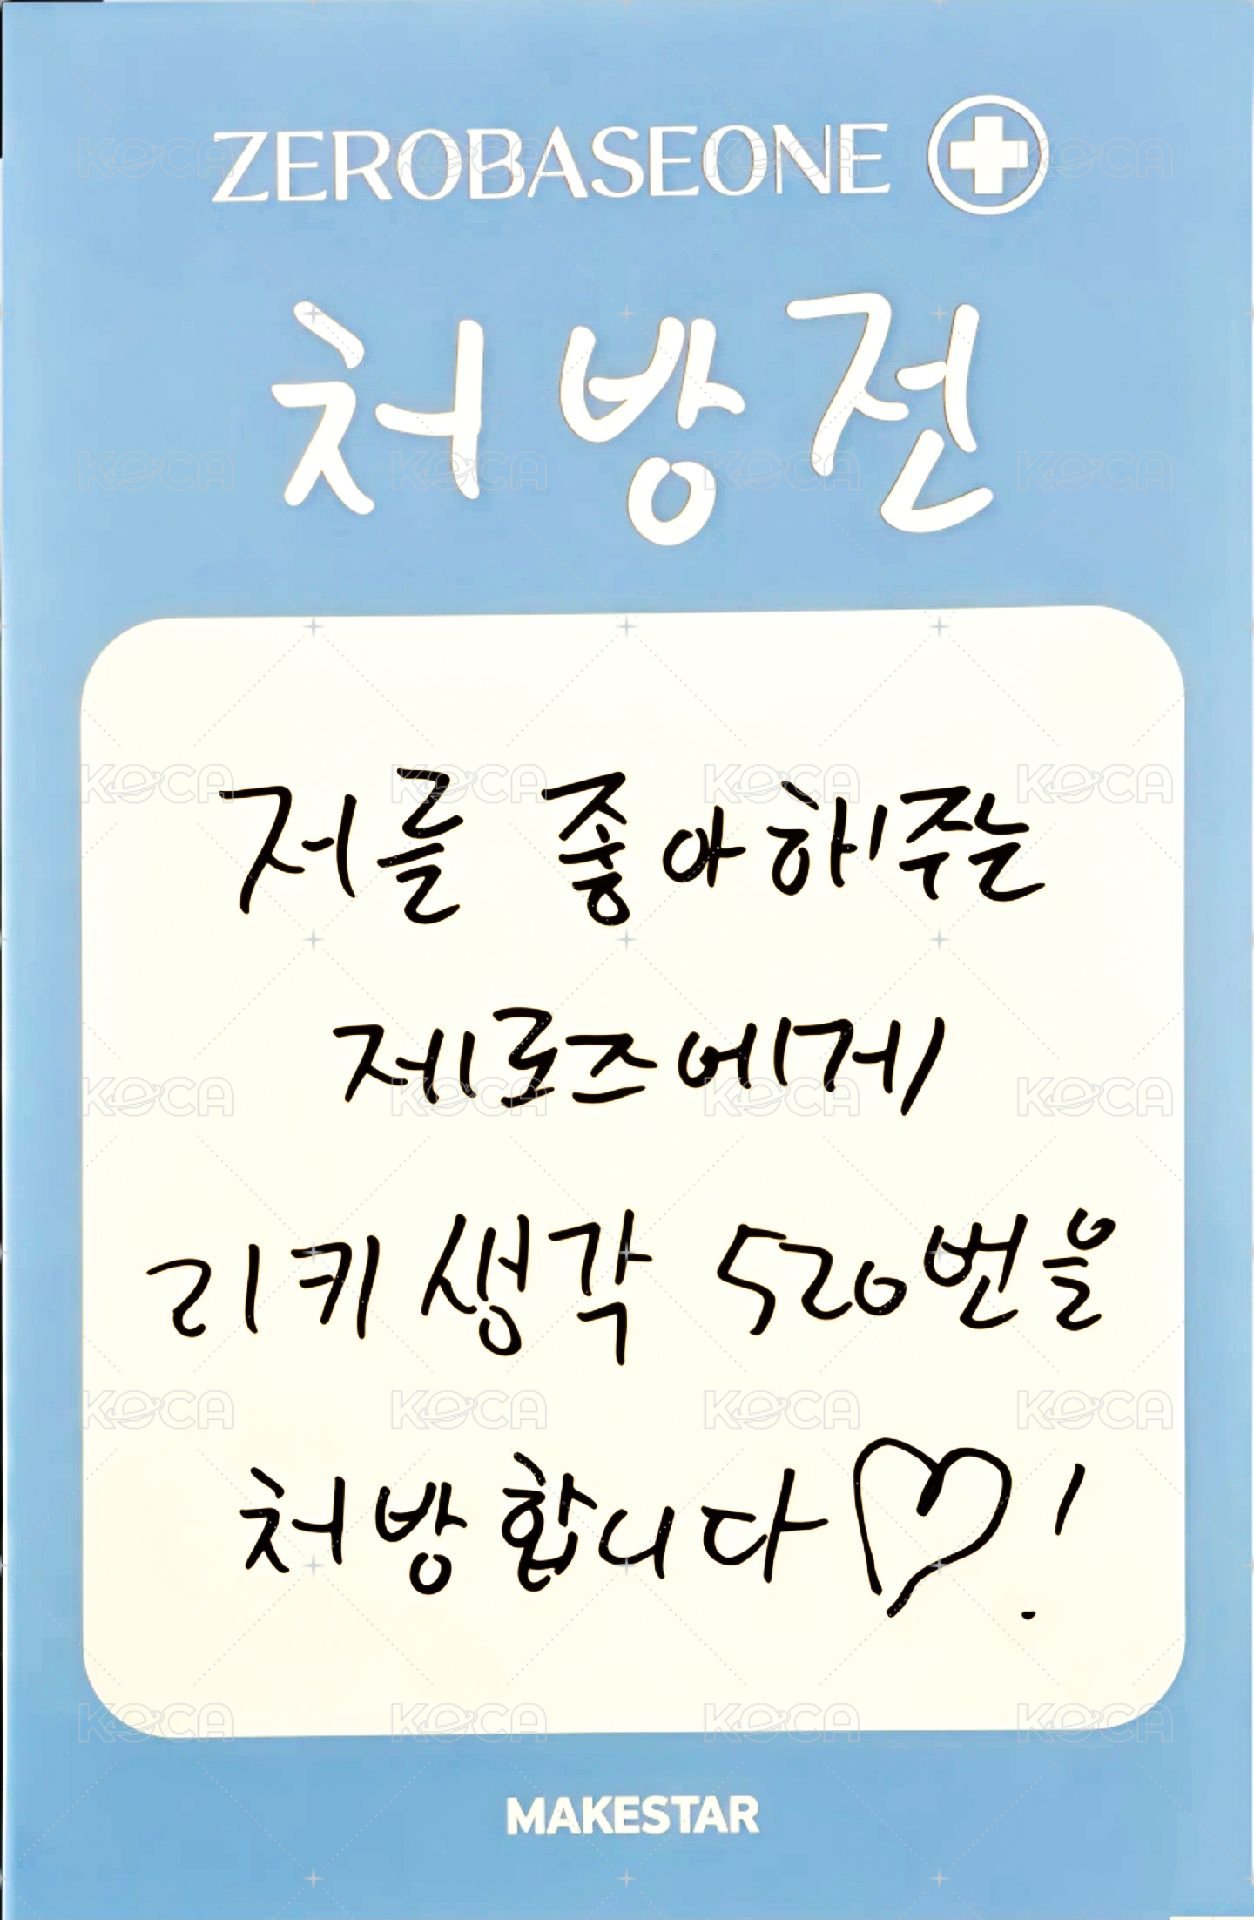 ZEROBASEONE
처방전
저를 좋아해주는
제로즈에게
리키 생각 520번을
처방합니다♡!
MAKESTAR
KOCA